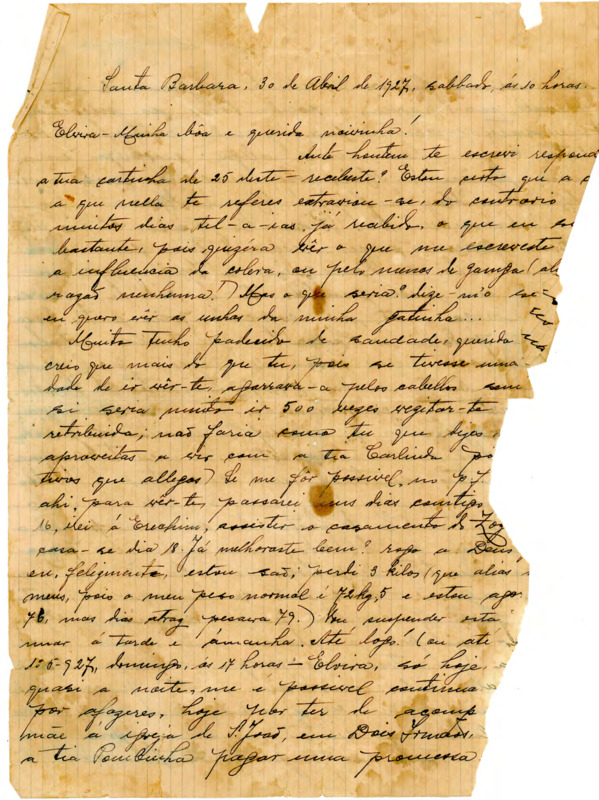 Santa Barbara, 30 de Abril de 1927, sabbado, ás 10 horas.
Elvira - Minha bôa e querida noivinha!
Ante hontem te escrevi respond
a tua cartinha de 25 deste - recebeste? Estou certo que a c
a que nella te referes extraviou-se, do contrario
muitos dias tel-a-ias já recebido, o que eu
bastante, pois quizera vêr o que me escreveste
a influencia da colera, ou pelo menos de
razão nenhuma!) Mas o que seria? dize-m'o
eu quero vêr as unhas da minha gatinha...
Muito tenho padecido de saudade, querida
creio que mais do que tu, pois se tivesse uma
dade de ir vêr-te, agarrava-a pelos cabellos sem
si seria muito ir 500 vezes vizitar-te
retribuida; não faria como tu que
aproveitas a vir com a tia Carlinda
tivos que allegas) Se me fôr possivel, no p.
ahi, para vêr-te, passarei uns dias comtigo
16, irei á Erechim, assistir o casamento do
casa-se dia 18. Já melhoraste bem? rogo a Deus
eu, felizmente, estou são; perdi 3 kilos (que alias
meus, pois o meu peso normal é 72kg,5 e estou ago
76, mas dias atraz pesava 79.) Vou suspender esta
nuar á tarde e ámanha. Até logo! (ou até
1-5-927, domingo, ás 17 horas - Elvira, só hoje,
quasi a noite, me é possivel continua
por afazeres, hoje por ter de acomp
mãe á igreja de S. João, em Dois Irmãos,
a tia Pombinha pagar uma promessa